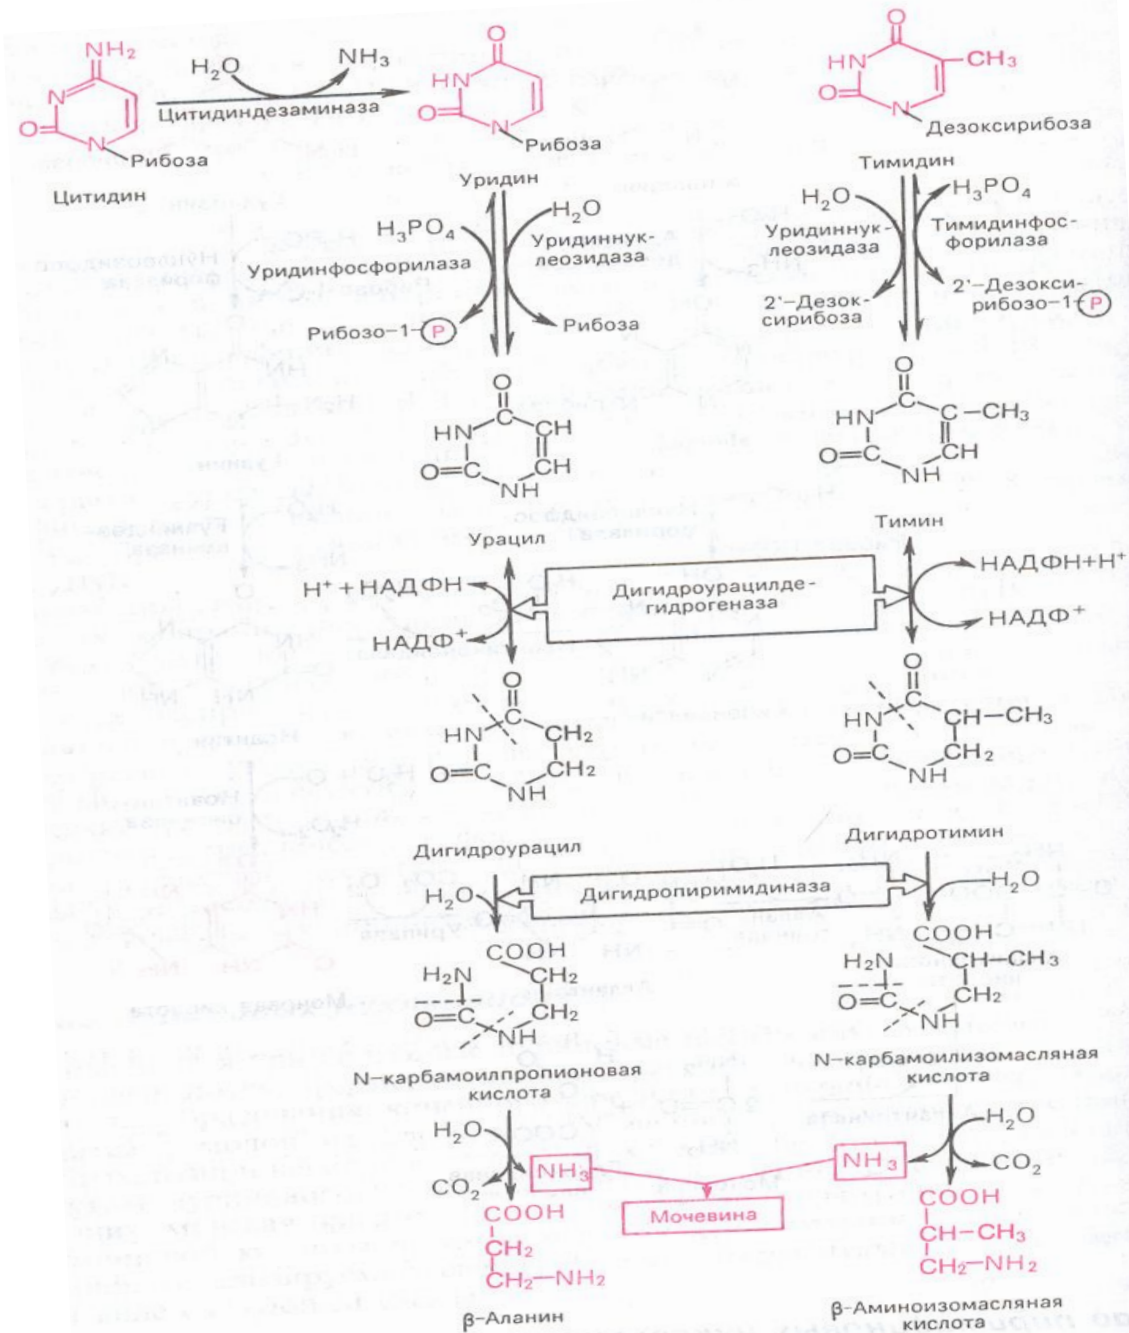 NH₂
N
O
N
Рибоза
Цитидин
H₂O
NH₃
Цитидиндезаминаза
O
HN
O
N
Рибоза
Уридин
O
HN
CH₃
O
N
Дезоксирибоза
Тимидин
H₃PO₄
H₂O
Уридинфосфорилаза
Уридиннук-
леозидаза
Рибозо–1–P
Рибоза
H₂O
H₃PO₄
Уридиннук-
леозидаза
Тимидинфос-
форилаза
2'–Дезок-
сирибоза
2'–Дезокси-
рибозо–1–P
O
C
HN
CH
O=C
CH
NH
Урацил
O
C
HN
C–CH₃
O=C
CH
NH
Тимин
H⁺ + НАДФН
НАДФ⁺
Дигидроурацилде-
гидрогеназа
НАДФН+H⁺
НАДФ⁺
O
C
HN
CH₂
O=C
CH₂
NH
Дигидроурацил
O
C
HN
CH–CH₃
O=C
CH₂
NH
Дигидротимин
H₂O
Дигидропиримидиназа
H₂O
COOH
H₂N
CH₂
O=C
CH₂
NH
N–карбамоилпропионовая
кислота
COOH
H₂N
CH–CH₃
O=C
CH₂
NH
N–карбамоилизомасляная
кислота
H₂O
CO₂
NH₃
Мочевина
NH₃
H₂O
CO₂
COOH
CH₂
CH₂–NH₂
β–Аланин
COOH
CH–CH₃
CH₂–NH₂
β–Аминоизомасляная
кислота